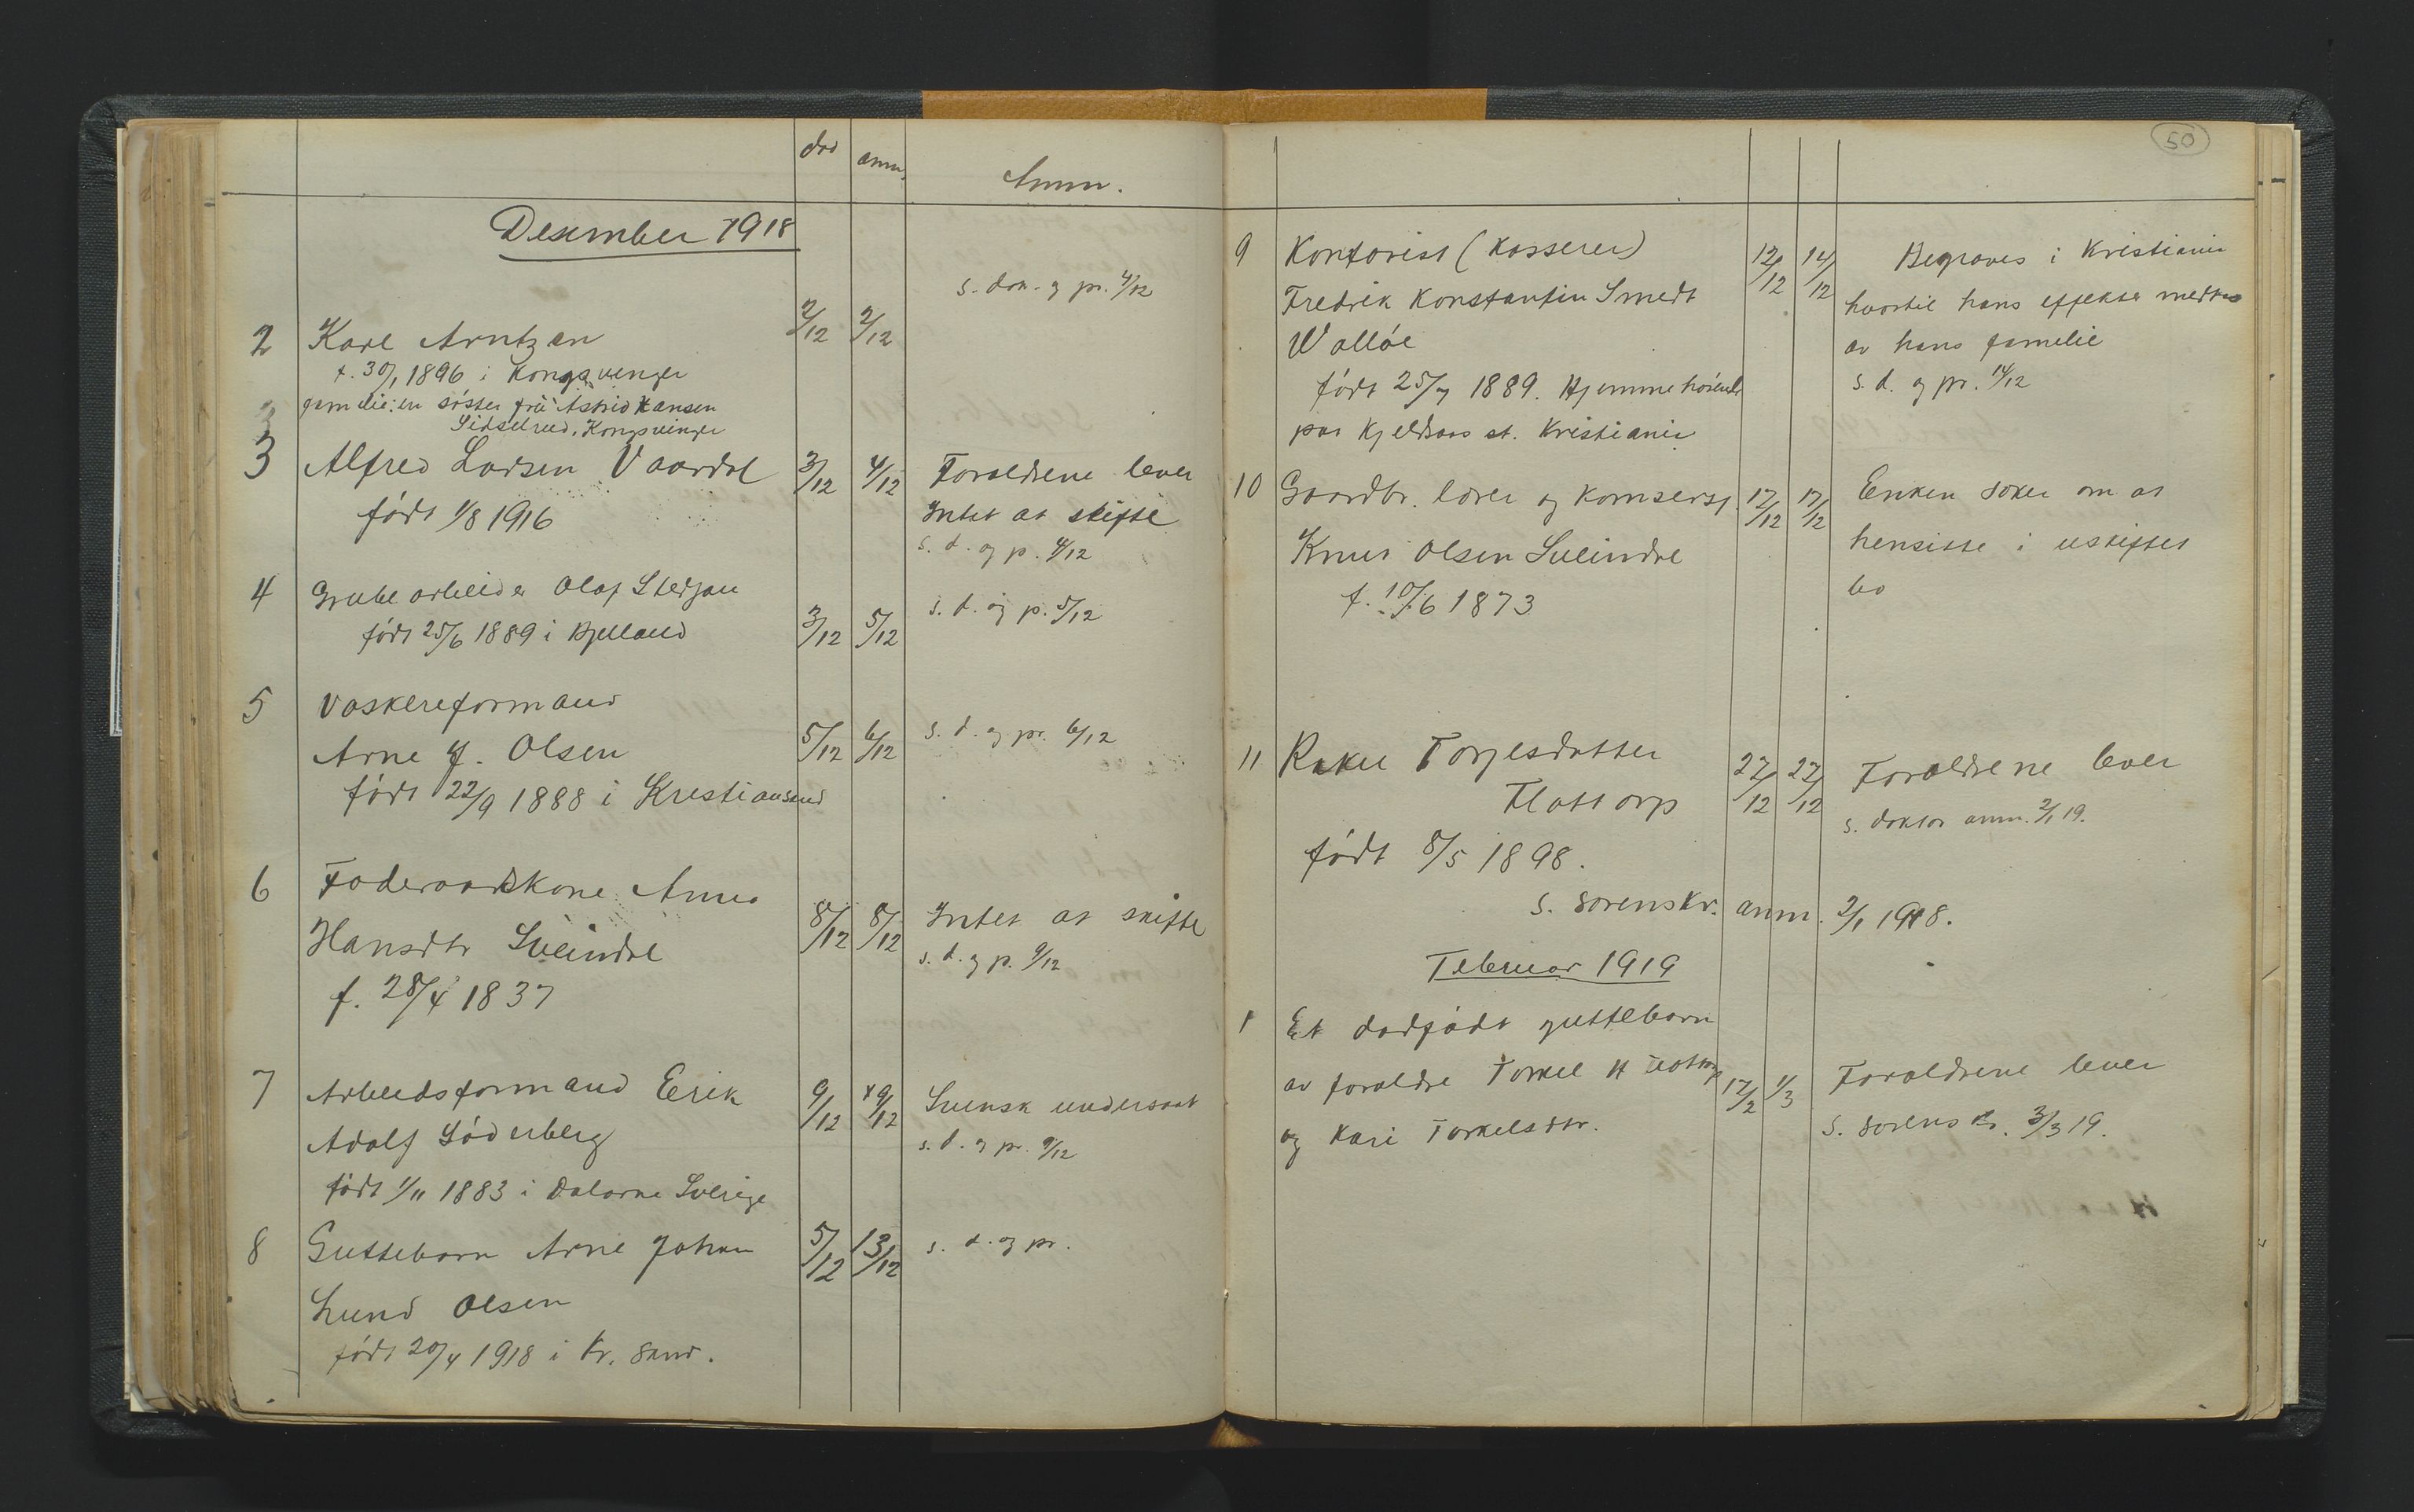 død anm. Anm.
Desember 1918
s. dok. og pr. 4/12
2 Karl Arntzen 2/12 2/12
f. 30/1 1896 i Kongsvinger
familie: en søster frk. Astrid Hansen
Sidselrud, Kongsvinger
3 Alfred Larsen Vaardal 3/12 4/12 Forældrene lever
født 1/8 1916 Intet at skifte
s. d. og p. 4/12
4 Grubearbeider Olaf
født 25/6 1889 i Bjelland 3/12 5/12 s. d. og p. 5/12
5 Vaskereformand
Arne J. Olsen 5/12 6/12 s. d. og pr. 6/12
født 22/9 1888 i Kristiansand
6 Føderaadskone Anna
Hansdtr Sveindal 8/12 8/12 Intet at skifte
f. 28/4 1837 s. d. og p. 9/12
7 Arbeidsformand Erik 9/12 9/12 Svensk undersaat
Adolf Søderberg s. d. og pr. 9/12
født 1/11 1883 i Dalarne Sverige
8 Guttebarn Arne Johan 5/12 13/12 s. d. og pr.
Lund Olsen
født 20/4 1918 i Kr. sand.
50
9 Kontorist (Kasserer) 12/12 14/12 Begraves i Kristiania
Fredrik Konstantin Smedt hvortil hans effekter medtas
Walløe av hans familie
født 25/7 1889. Hjemmehørende s. d. og pr. 14/12
paa Kjeldsaas st. Kristiania
10 Gaardbr. lærer og 17/12 17/12 Enken søker om at
Knut Olsen Sveindal hensitte i uskiftet
f. 10/6 1873 bo
11 Rakel Torjesdatter 27/12 27/12 Forældrene lever
Flottorp s. doktor anm. 2/1 19.
født 8/5 1898.
s. sorenskr. anm. 2/1 1918.
Februar 1919
1 Et dødfødt guttebarn
av forældre Torkel H Flottorp 17/2 1/3 Forældrene lever
og Kari Torkelsdtr. s. sorenskr. 3/3 19.